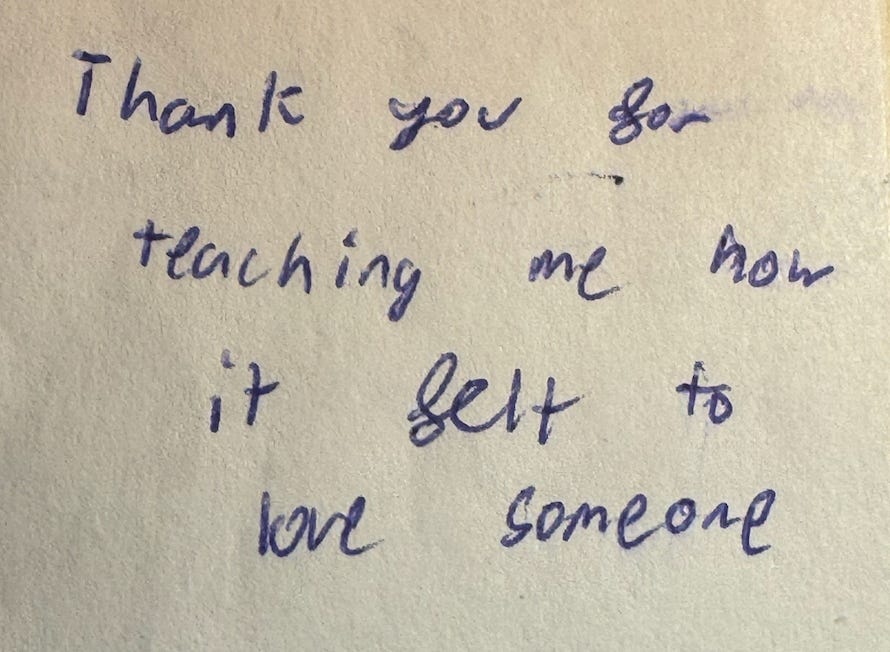 Thank you for
teaching me how
it felt to
love someone